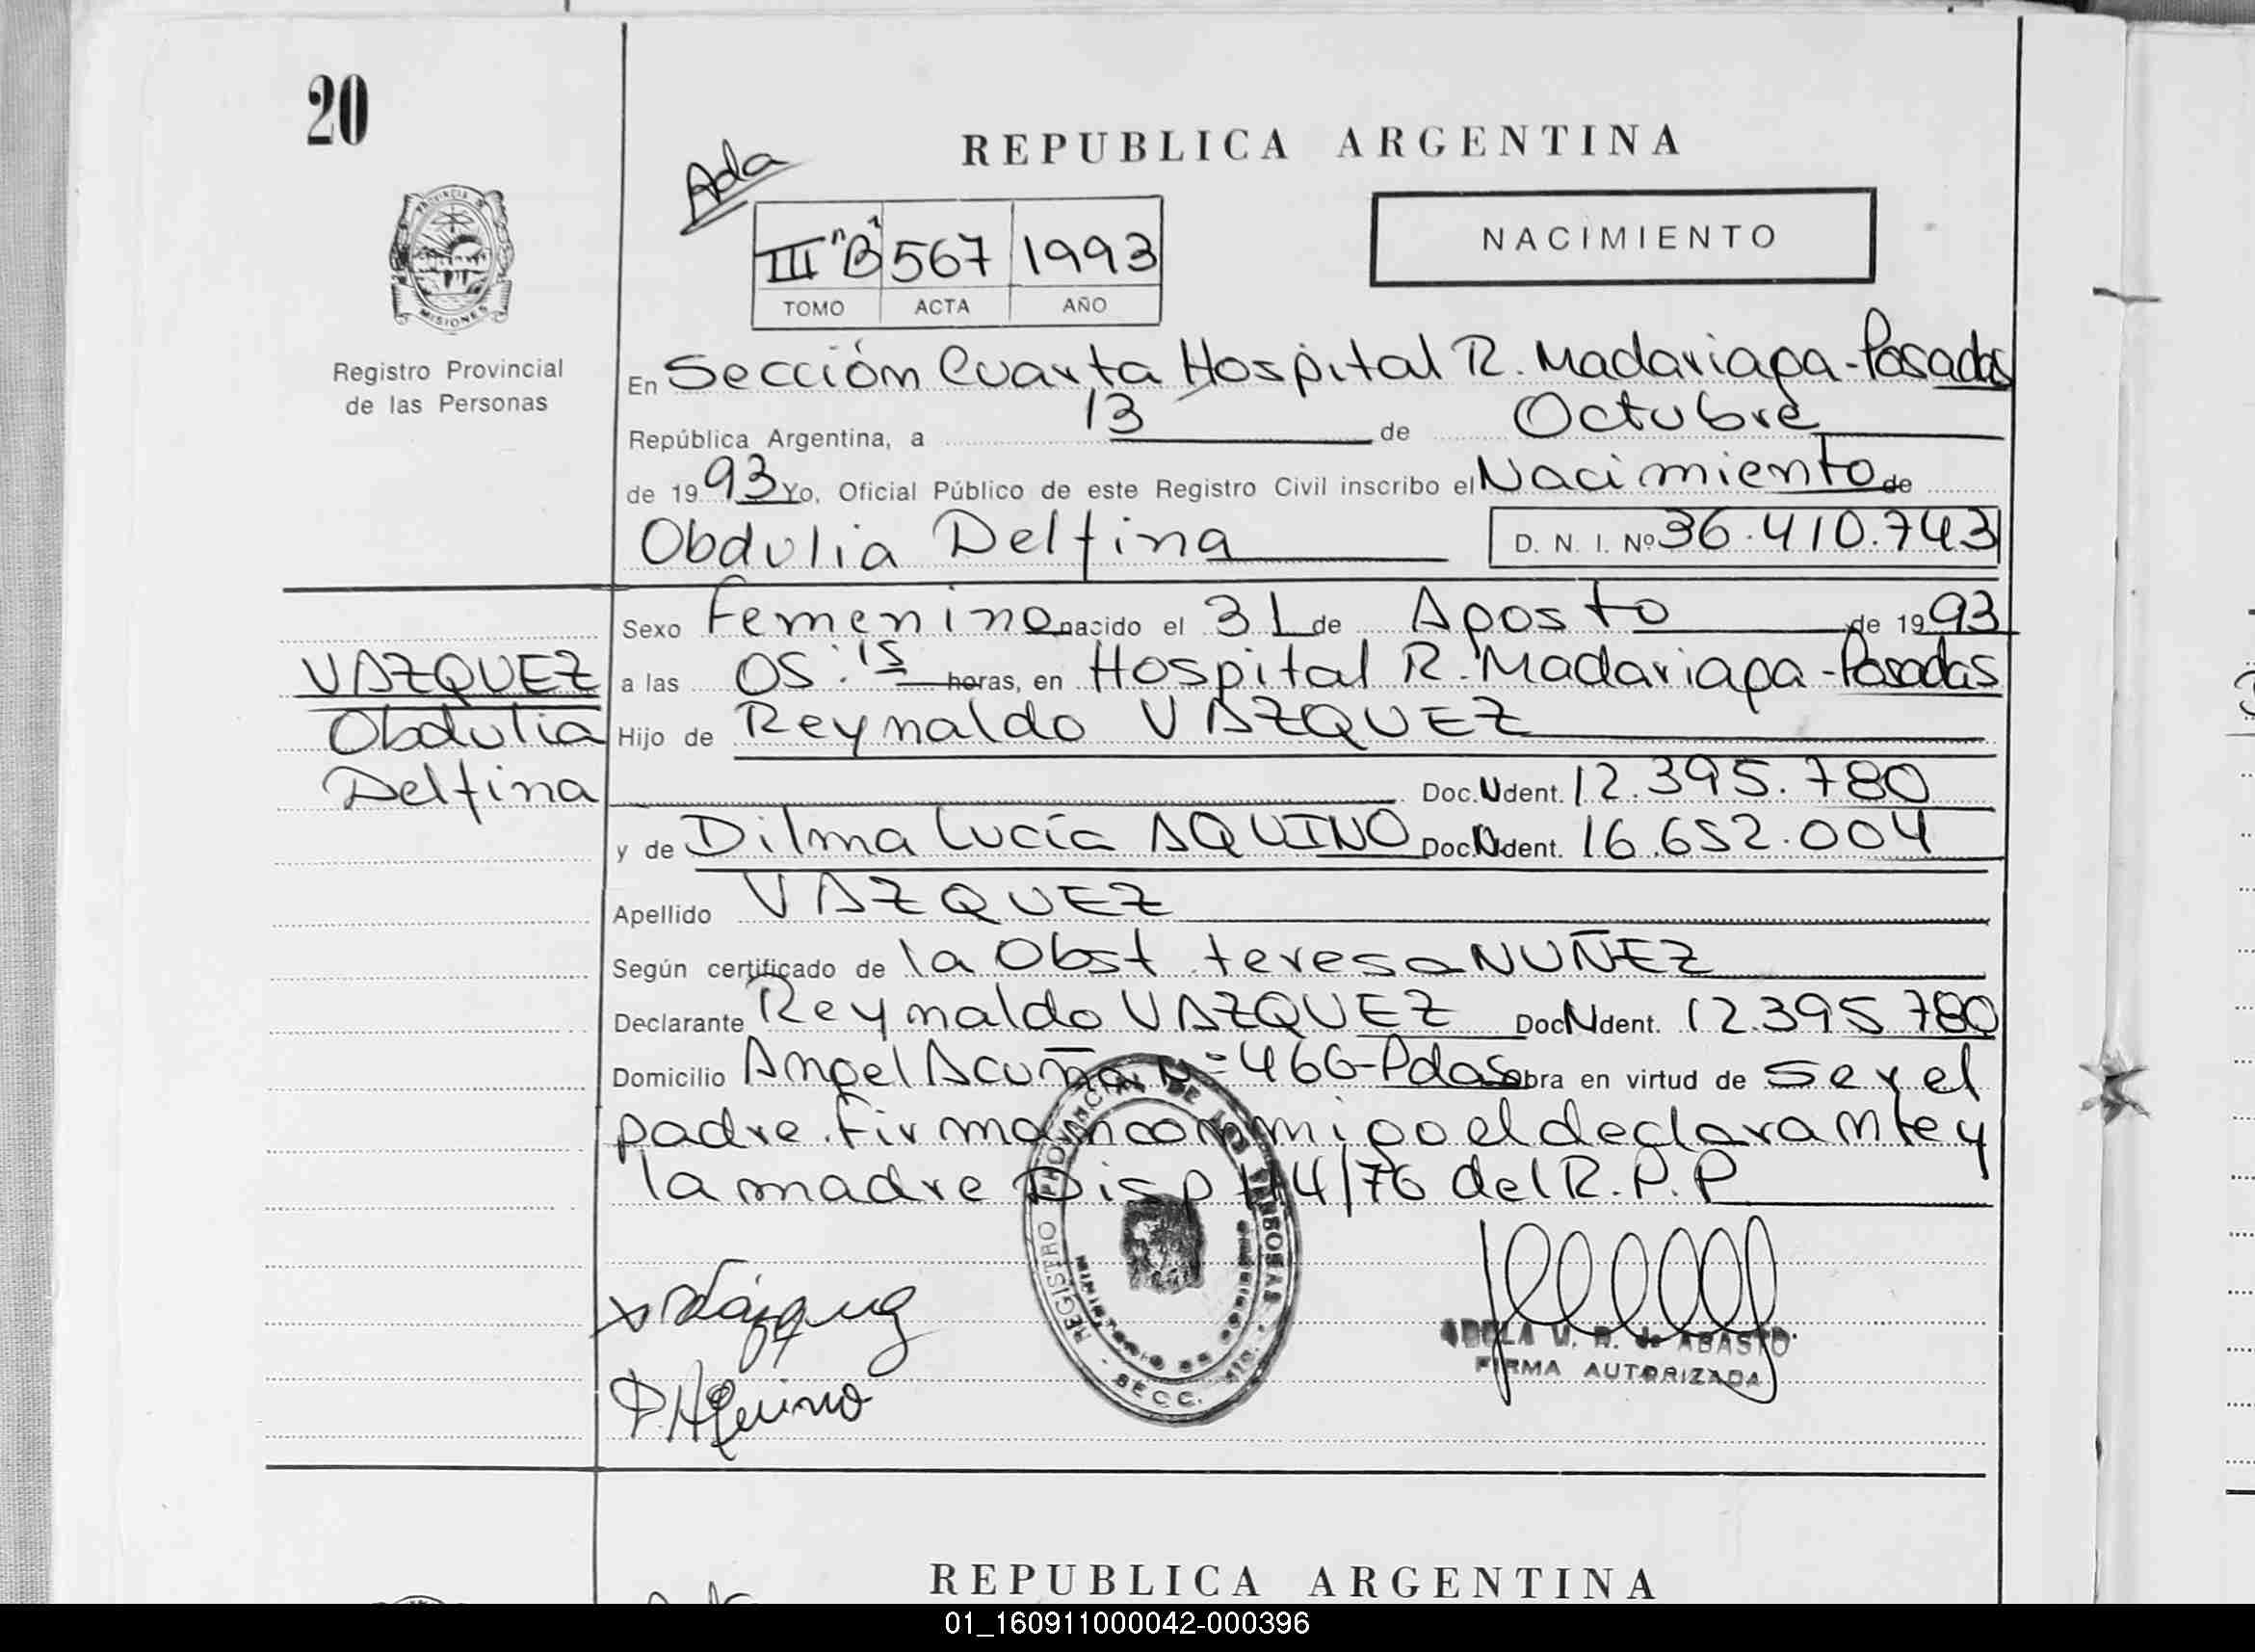 20
REPUBLICA ARGENTINA
Ada
PROVINCIA D
MISIONES
NACIMIENTO
III "B" 567 1993
TOMO ACTA AÑO
Registro Provincial
de las Personas
En Sección Cuarta Hospital R. Madariaga-Posadas
República Argentina, a 13 de Octubre
de 1993 Yo, Oficial Público de este Registro Civil inscribo el Nacimiento de
Obdulia Delfina D. N. I. Nº 36.410.743
Sexo Femenino nacido el 31 de Agosto de 1993
VAZQUEZ
Obdulia
Delfina
a las 05:15 horas, en Hospital R. Madariaga-Posadas
Hijo de Reynaldo VAZQUEZ
Doc. Ident. 12.395.780
y de Dilma Lucía AQUINO Doc. Ident. 16.652.004
Apellido VAZQUEZ
Según certificado de la Obst teresa NUÑEZ
Declarante Reynaldo VAZQUEZ Doc Ident. 12.395.780
Domicilio Angel Acuña Nº 466-Pdas obra en virtud de ser el
padre. Firman conmigo el declarante y
la madre Disp 114/76 del R.P.P
REGISTRO PROVINCIAL DE LAS PERSONAS
MINISTERIO DE GOBIERNO
SECC.
Vázquez
D. Aquino
ADELA V. R. de ABASTO
FIRMA AUTORIZADA
REPUBLICA ARGENTINA
01_160911000042-000396